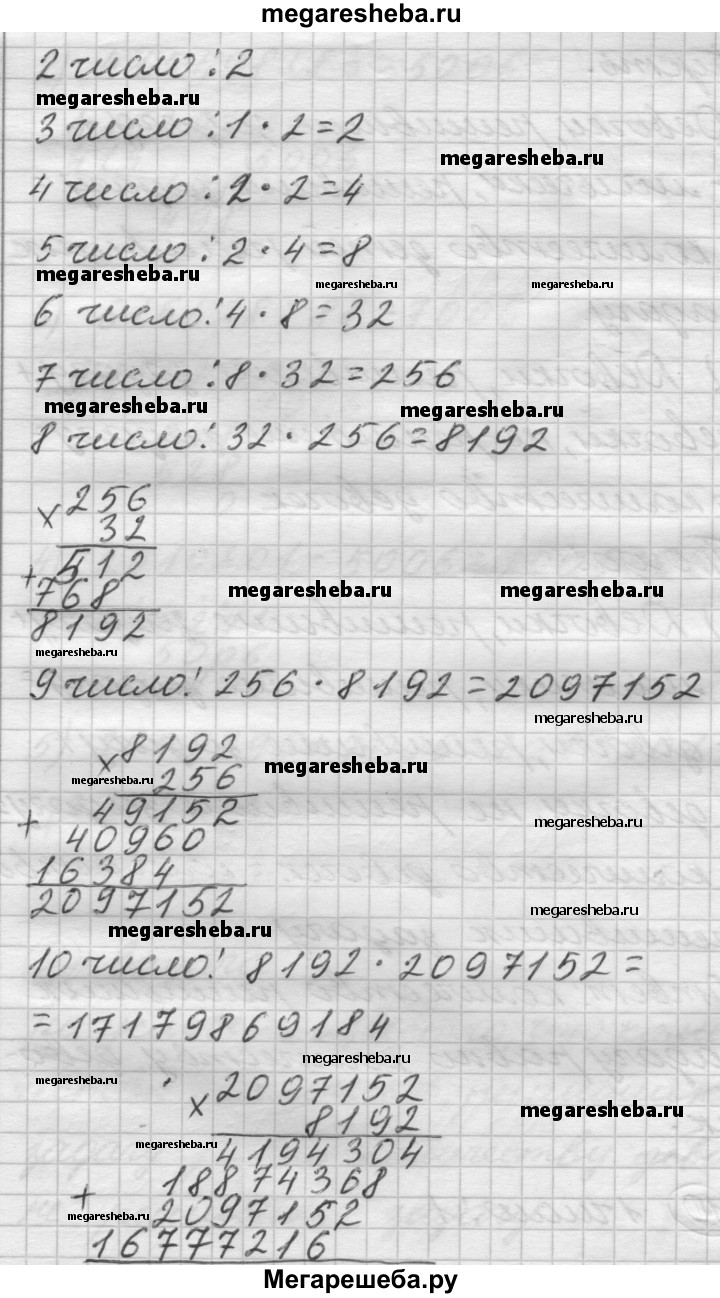 megaresheba.ru
2 число: 2
megaresheba.ru
3 число: 1 · 2 = 2
megaresheba.ru
4 число: 2 · 2 = 4
5 число: 2 · 4 = 8
megaresheba.ru megaresheba.ru megaresheba.ru
6 число: 4 · 8 = 32
7 число: 8 · 32 = 256
megaresheba.ru megaresheba.ru
8 число: 32 · 256 = 8192
× 256
32
+ 512
megaresheba.ru megaresheba.ru
768
8192
megaresheba.ru
9 число: 256 · 8192 = 2097152
megaresheba.ru
× 8192
megaresheba.ru
megaresheba.ru 256
+ 49152
megaresheba.ru
40960
16384
2097152
megaresheba.ru
megaresheba.ru
10 число: 8192 · 2097152 =
= 17179869184
megaresheba.ru
megaresheba.ru
× 2097152
megaresheba.ru
8192
megaresheba.ru
4194304
+ 18874368
megaresheba.ru 2097152
16777216
Мегарешеба.ру